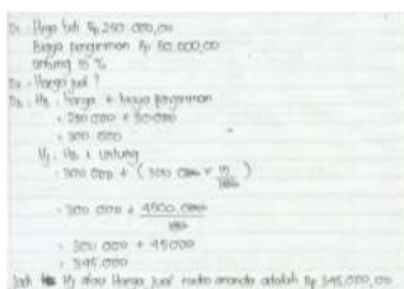 D1 : Harga beli Rp 250 000,00
Biaya pengiriman Rp 50.000,00
untung 15 %
D2 : Harga jual ?
D3 : Hb : harga + biaya pengiriman
= 250 000 + 50000
= 300 000
Hj : Hb + untung
= 300 000 + ( 300 000 x 15/100 )
= 300 000 + 4500 000/100
= 300 000 + 45000
= 345.000
Jadi Hj atau Harga jual radio ananda adalah Rp 345.000,00